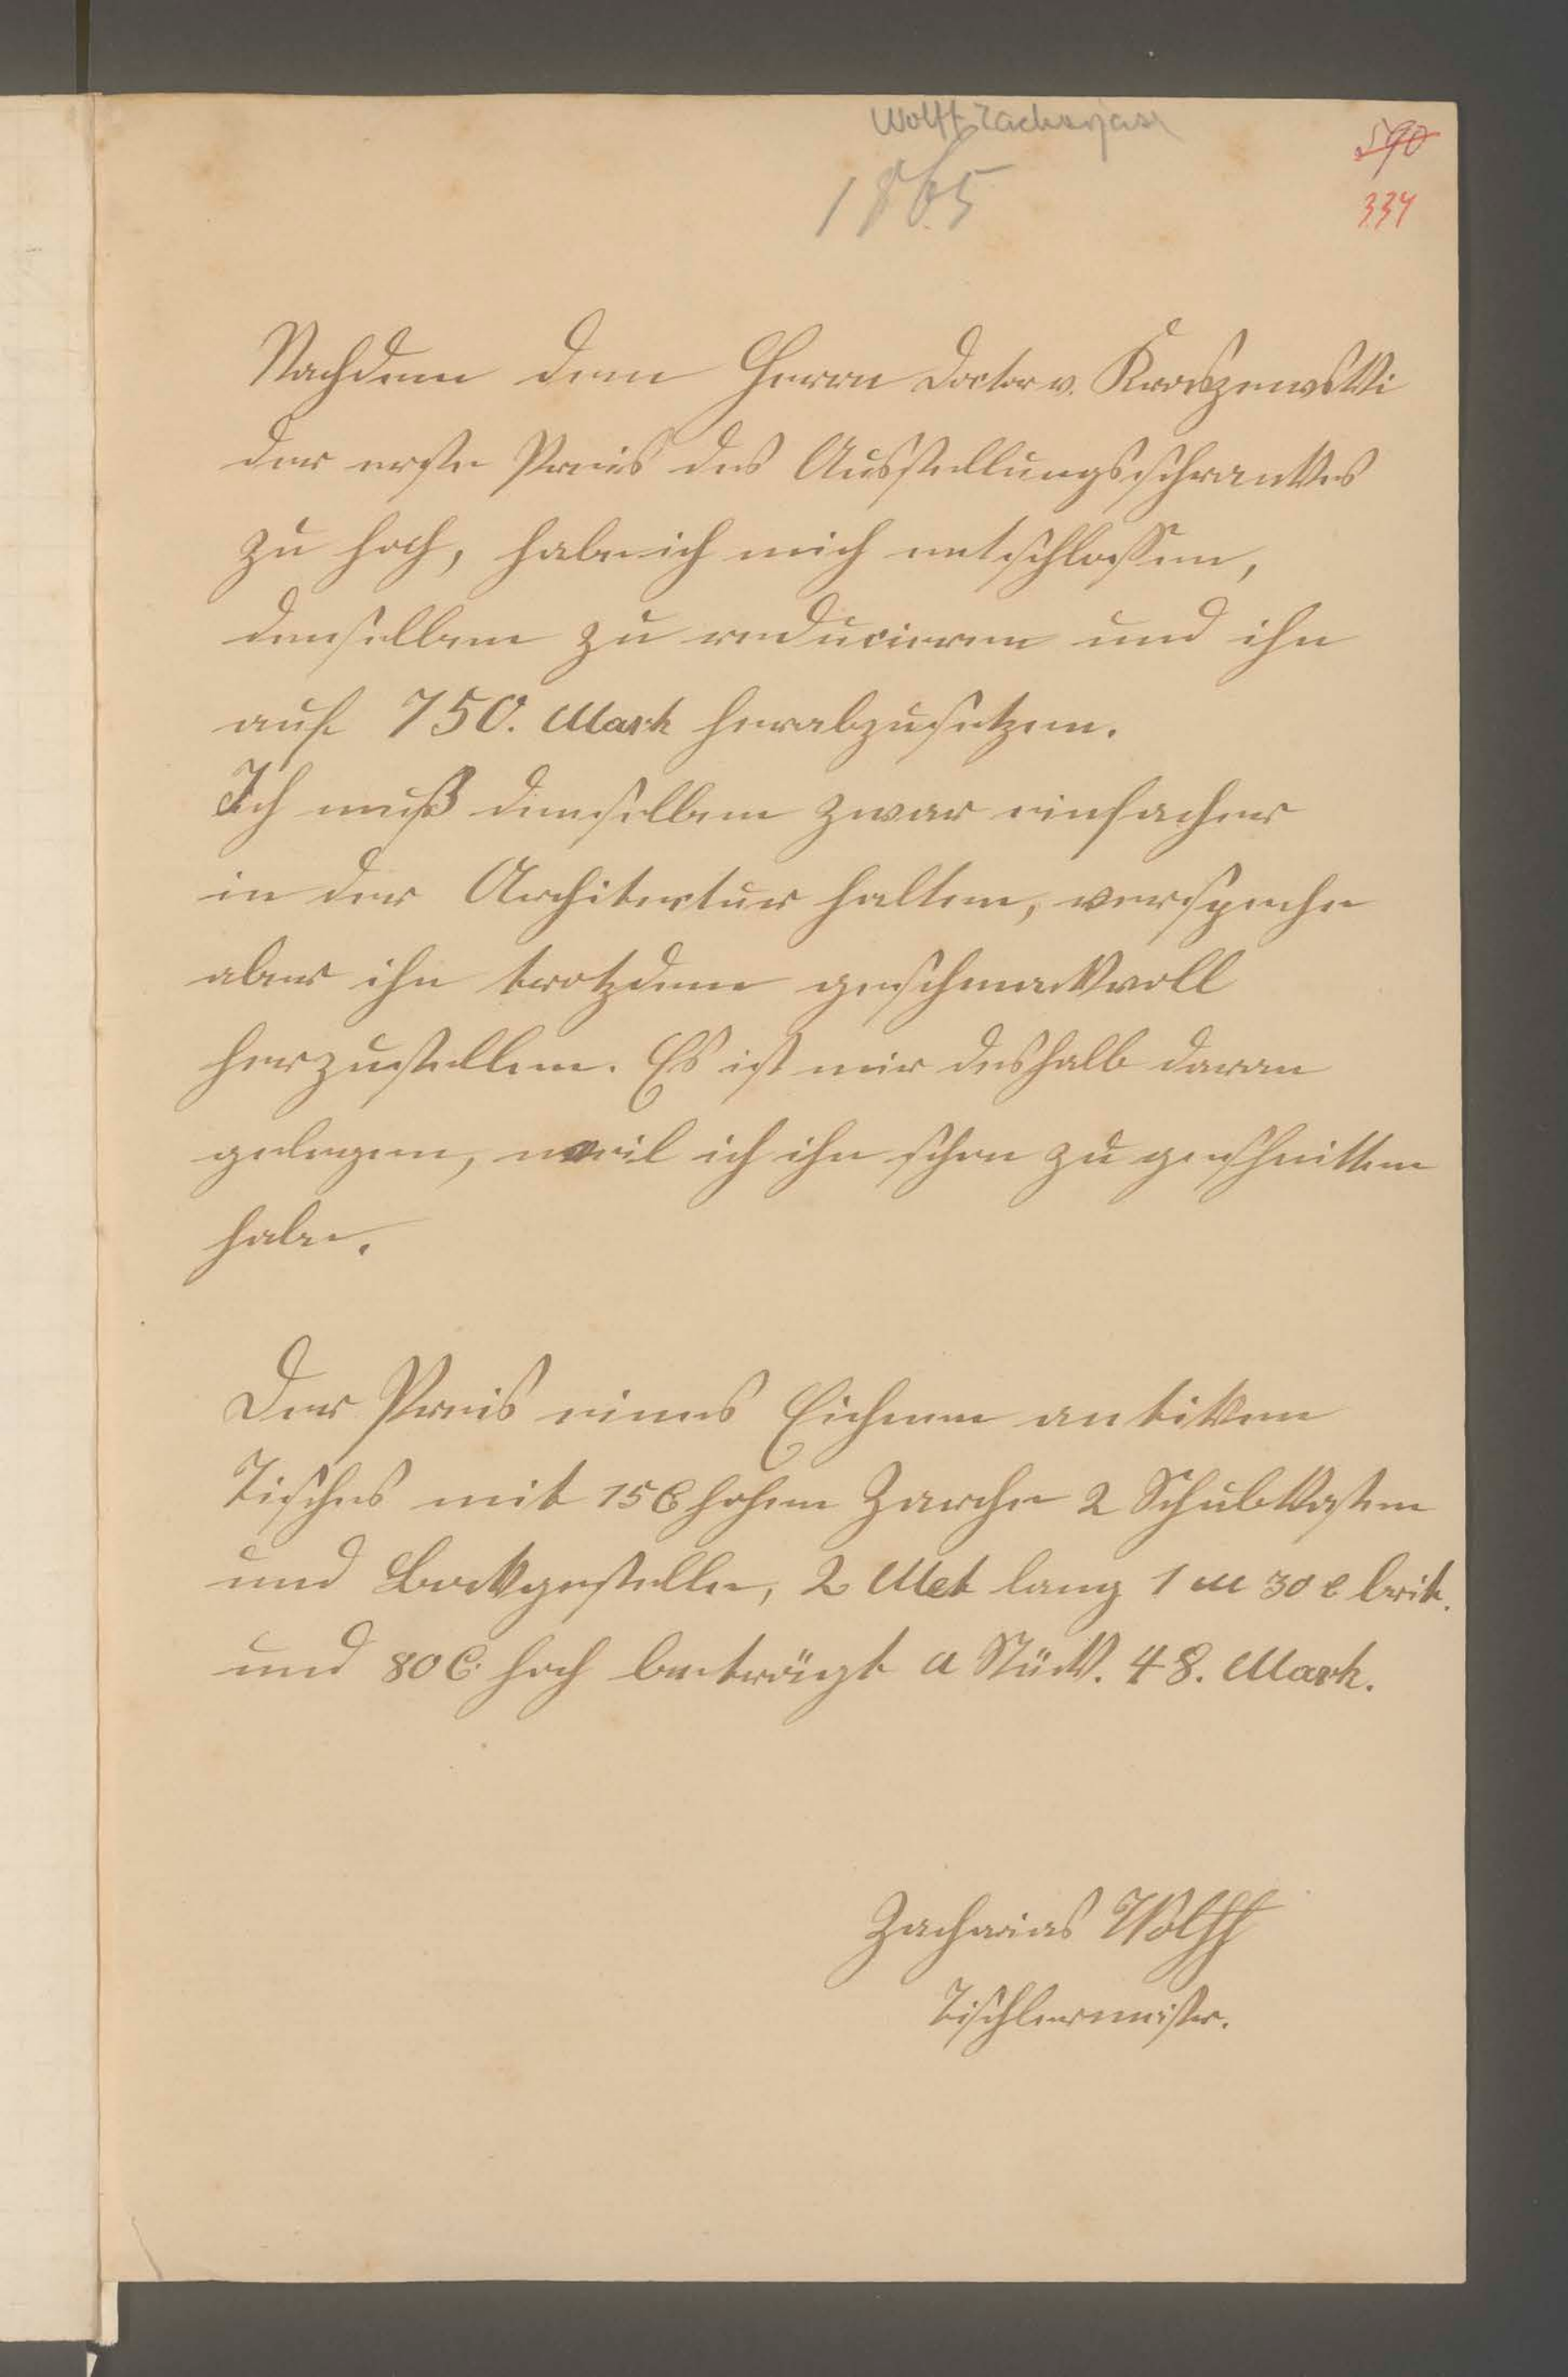 Wolff Zacharjasz
590
1865
334
Nachdem dem Herrn Doctor v. Kraszewski
der erste Preis des Ausstellungsschrankes
zu hoch, habe ich mich entschlossen,
denselben zu reducieren und ihn
auf 750. Mark herabzusetzen.
Ich muß denselben zwar einfacher
in der Architectur halten, verspreche
aber ihn trotzdem geschmackvoll
herzustellen. Es ist mir deshalb daran
gelegen, weil ich ihn schon zu geschnitten
habe.
Der Preis eines Eichenen antiken
Tisches mit 15 C hohem Zarche 2 Schubkasten
und Bockgestelle, 2 Met lang 1 m 30 c breit.
und 80 C. hoch beträgt a Stück. 48. Mark.
Zacharias Wolff
Tischlermeister.